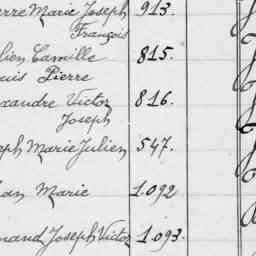 erre Marie Joseph 913.
François
lien Camille 815.
uis Pierre
exandre Victor 816.
Joseph
eph Marie Julien 547.
an Marie 1.092
mand Joseph Victor 1.093.